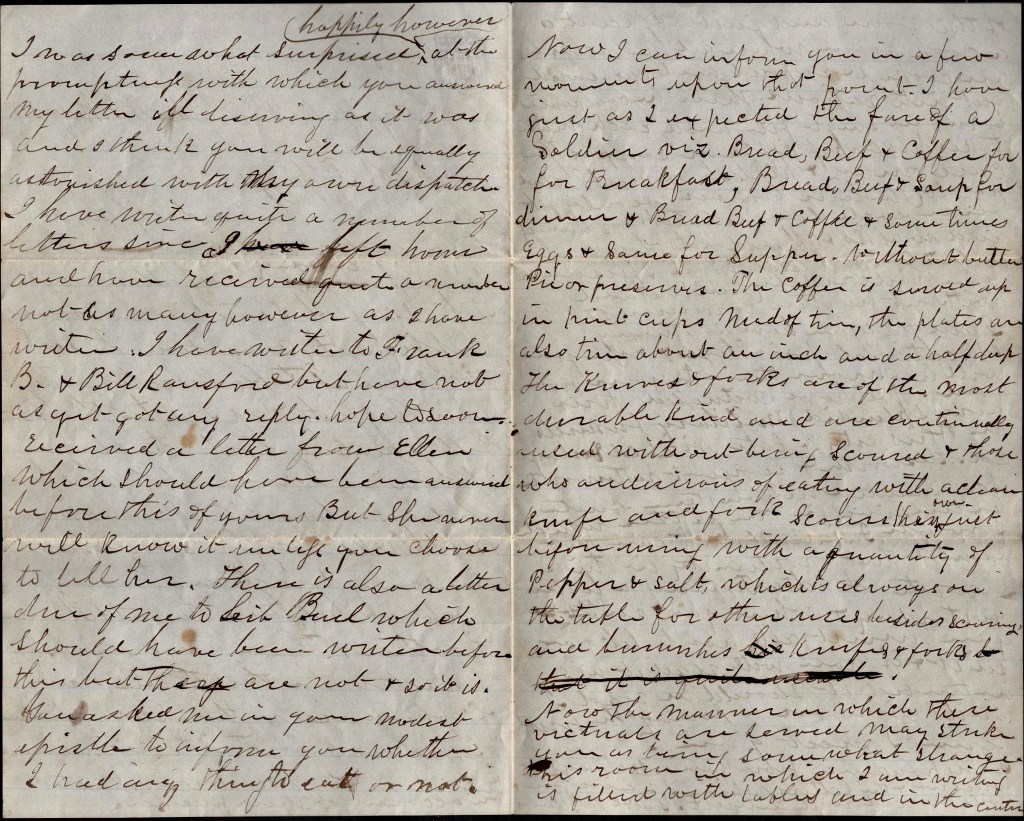 happily however
I was some what surprised, at the
promptness with which you answered
my letter ill deserving as it was
and I think you will be equally
astonished with my own dispatch.
I have writen quite a number of
letters since I left home
and have received quite a number
not as many however as I have
writen. I have writen to Frank
B. & Bill Ransford but have not
as yet got any reply. hope to soon.
received a letter from Ellen
which should have been answered
before this of yours But She never
will know it unless you choose
to tell her. There is also a letter
due of me to Buel which
should have been writen before
this but are not & so it is.
You asked me in your modest
epistle to inform you whether
I had any thing to eat or not.
Now I can inform you in a few
moments upon that point. I have
just as I expected the fare of a
Soldier viz. Bread, Beef & Coffee for
for Breakfast, Bread, Beef & Soup for
dinner & Bread Beef & Coffee & sometimes
Eggs & Same for Supper. Without butter
Pie or preserves. The Coffee is served up
in pint cups Made of tin, the plates are
also tin about an inch and a half deep
The Knives & forks are of the most
durable kind and are continually
used without being Scoured & those
who are desirous of eating with a clean
knife and fork Scours his own first
before using with a quantity of
Pepper & Salt, which is always on
the table for other uses besides scouring
and burnishes Knifes & forks
that it is quite
Now the manner in which these
victuals are served may strike
you as being some what strange.
This room in which I am writing
is filled with tables and in the center